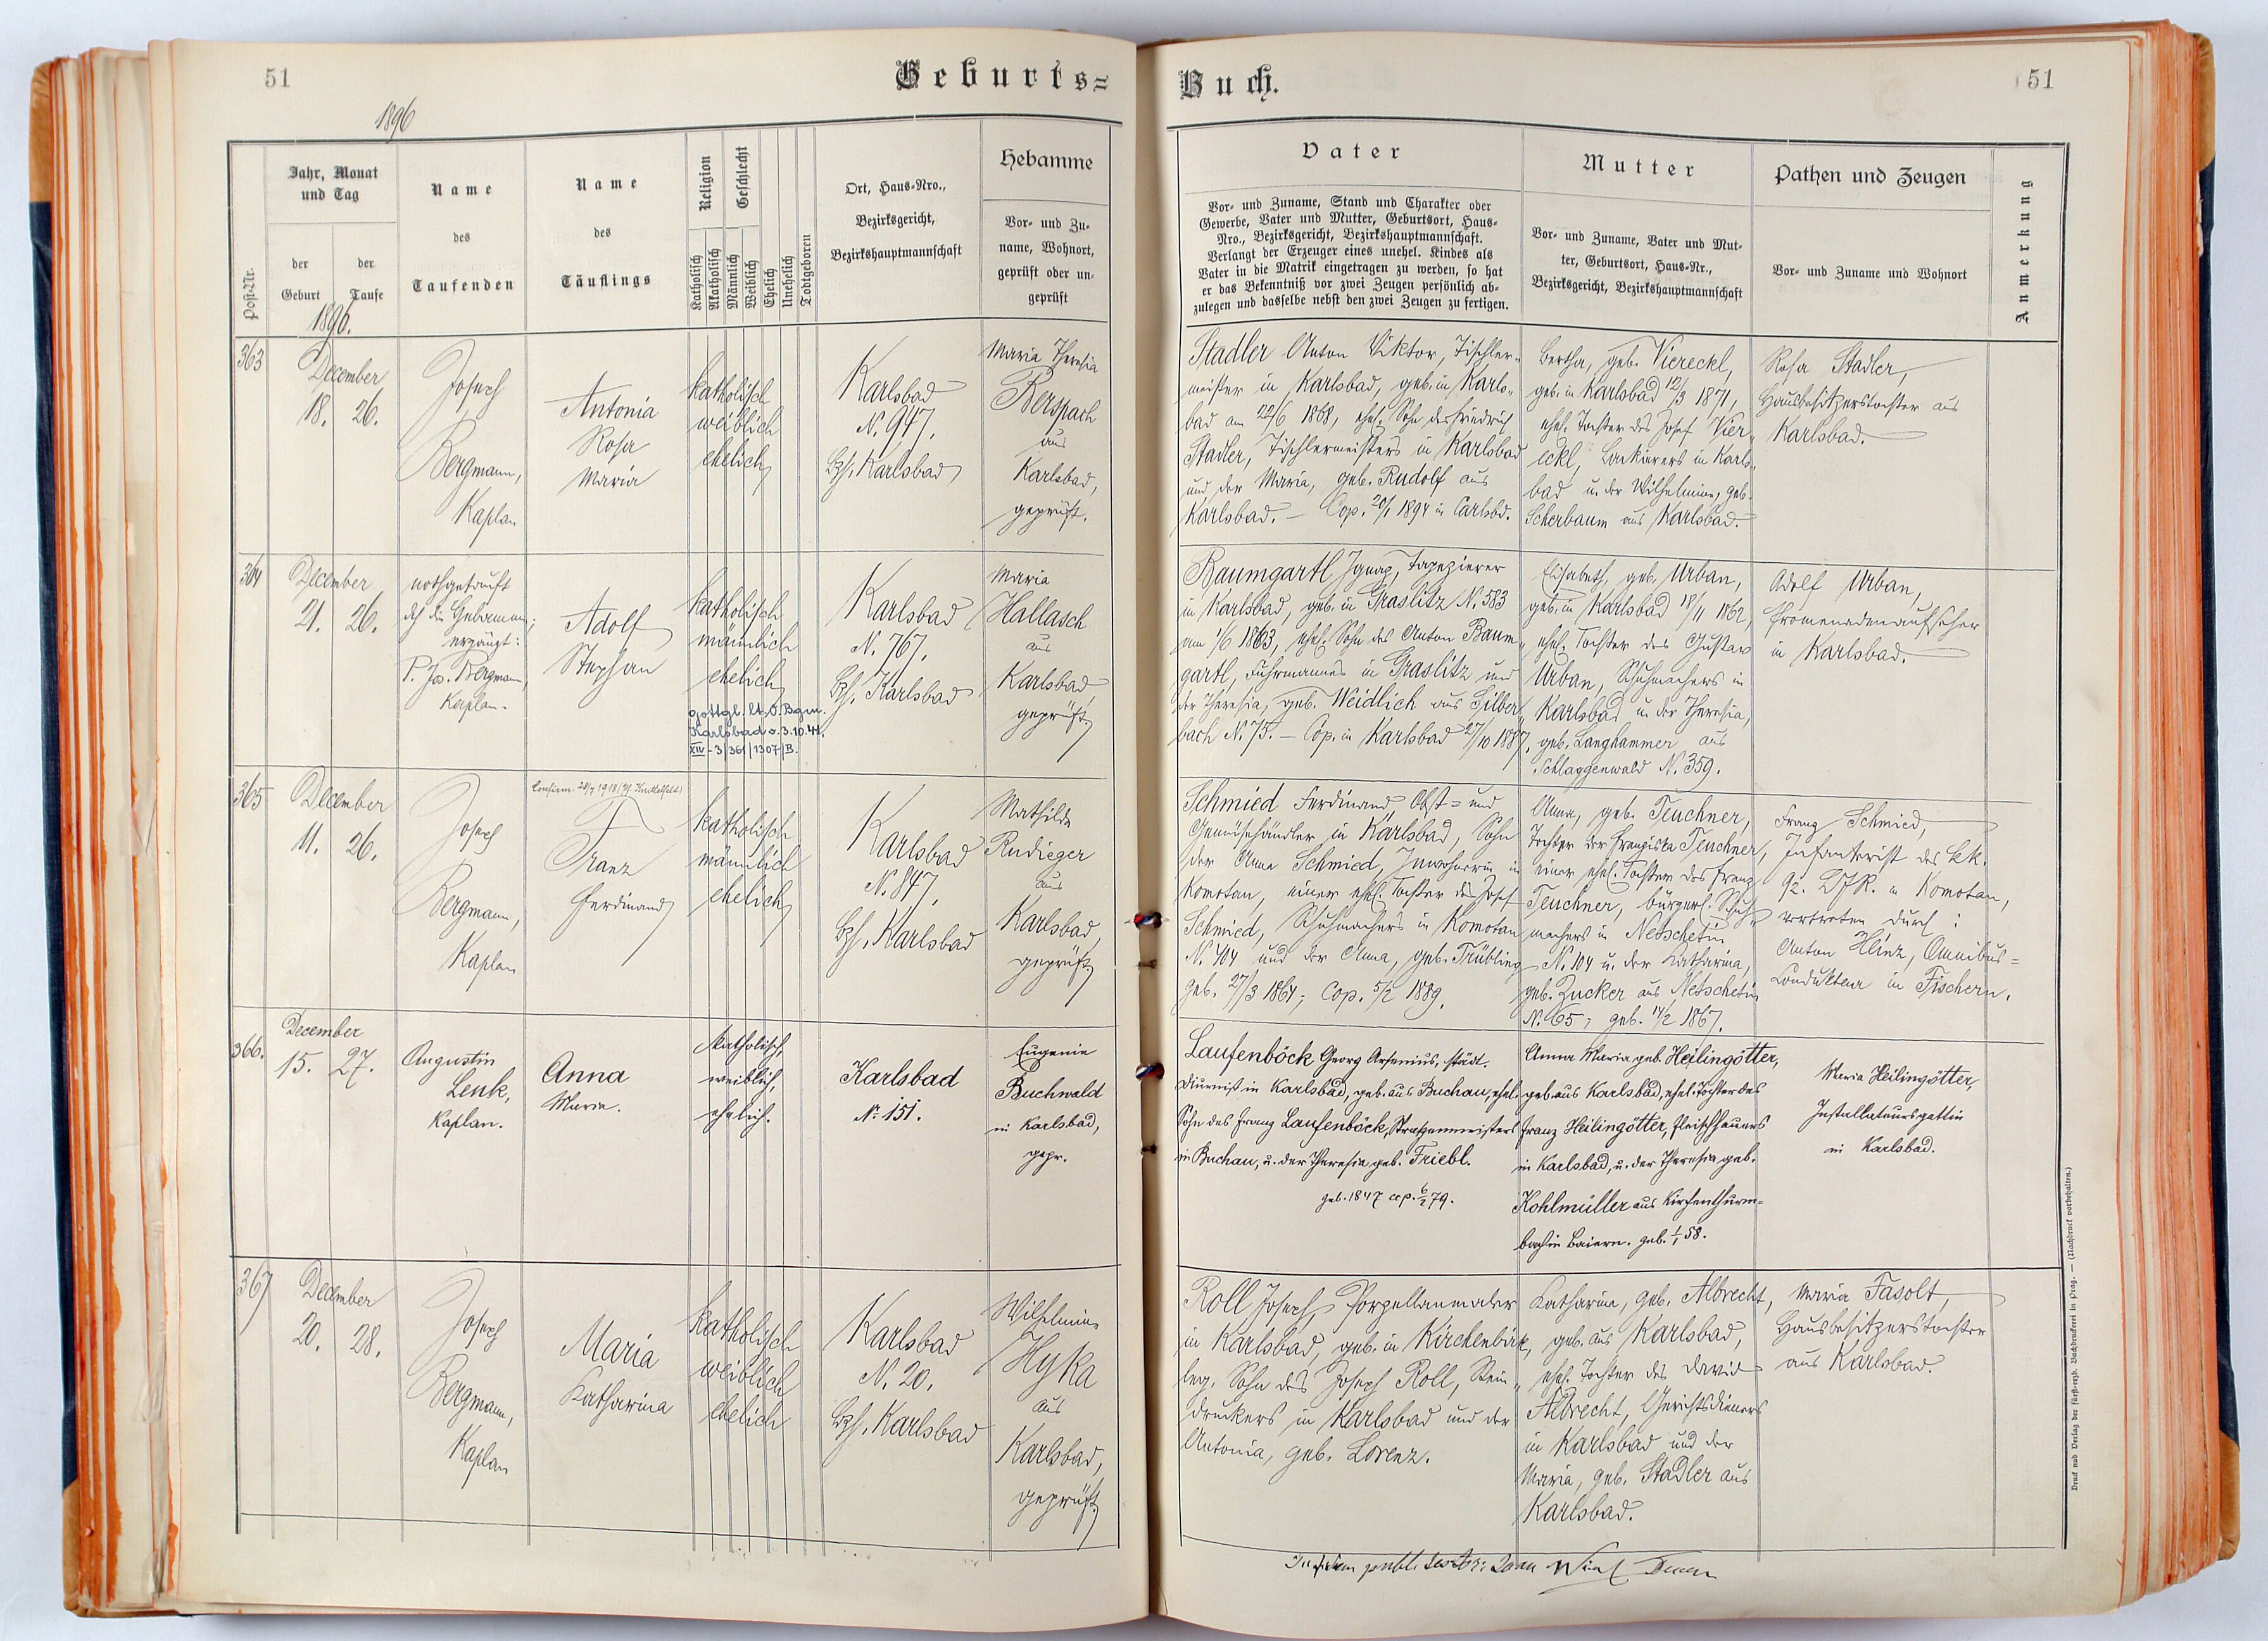 51
Geburts=
1896
Post-Nr.
Jahr, Monat
und Tag
der
Geburt
der
Taufe
1896.
Name
des
Taufenden
Name
des
Täuflings
Religion
Geschlecht
Katholisch
Akatholisch
Männlich
Weiblich
Ehelich
Unehelich
Todtgeboren
Ort, Haus-Nro.,
Bezirksgericht,
Bezirkshauptmannschaft
Hebamme
Vor- und Zu-
name, Wohnort,
geprüft oder un-
geprüft
363
December
18. 26.
Joseph
Bergmann,
Kaplan
Antonia
Rosa
Maria
katholisch
weiblich
ehelich
Karlsbad
N. 947.
Bzh. Karlsbad
Maria Theresia
Berspach
aus
Karlsbad,
geprüft.
364
December
21. 26.
nothgetauft
ergänzt:
P. Jos. Bergmann,
Kaplan.
Adolf
Stephan
katholisch
männlich
ehelich
gottgl. lt. O. Bgm.
Karlsbad v. 3.10.41.
XIV-3/361/1307/B.
Karlsbad
N. 767.
Bzh. Karlsbad
Maria
Hallasch
aus
Karlsbad,
geprüft
365
December
11. 26.
Joseph
Bergmann,
Kaplan
Franz
Ferdinand
katholisch
männlich
ehelich
Karlsbad
N. 847.
Bzh. Karlsbad
Mathilde
Rudieger
aus
Karlsbad
geprüft
366.
December
15. 27.
Augustin
Lenk,
Kaplan.
Anna
Maria.
katholisch,
weiblich.
ehelich.
Karlsbad
No. 151.
Eugenie
Buchwald
in Karlsbad,
gepr.
367
December
20. 28.
Joseph
Bergmann,
Kaplan
Maria
Katharina
katholisch
weiblich
ehelich
Karlsbad
N. 20.
Bzh. Karlsbad
Wilhelmine
Hyka
aus
Karlsbad,
geprüft
Buch.
51
Vater
Vor- und Zuname, Stand und Charakter oder
Gewerbe, Vater und Mutter, Geburtsort, Haus-
Nro., Bezirksgericht, Bezirkshauptmannschaft.
Verlangt der Erzeuger eines unehel. Kindes als
Vater in die Matrik eingetragen zu werden, so hat
er das Bekenntniß vor zwei Zeugen persönlich ab-
zulegen und dasselbe nebst den zwei Zeugen zu fertigen.
Mutter
Vor- und Zuname, Vater und Mut-
ter, Geburtsort, Haus-Nr.,
Bezirksgericht, Bezirkshauptmannschaft
Pathen und Zeugen
Vor- und Zuname und Wohnort
Anmerkung
Stadler Anton Viktor, Tischler-
meister in Karlsbad, geb. in Karls-
bad am 22/6 1868, ehel. Sohn des Friedrich
Stadler, Tischlermeisters in Karlsbad
und der Maria, geb. Rudolf aus
Karlsbad. – Cop. 20/1 1894 in Carlsbd.
Bertha, geb. Viereckl,
geb. in Karlsbad 12/3 1871,
ehel. Tochter des Josef Vier-
eckl, Lackierers in Karls-
bad u. der Wilhelmine, geb.
Scherbaum aus Karlsbad.
Rosa Stadler,
Hausbesitzerstochter aus
Karlsbad.
Baumgartl Ignaz, Tapezierer
in Karlsbad, geb. in Graslitz N. 583
am 1/6 1863, ehel. Sohn des Anton Baum-
gartl, Fuhrmannes in Graslitz und
der Theresia, geb. Weidlich aus Silber-
bach N. 75. – Cop. in Karlsbad 27/10 1887.
Elisabeth, geb. Urban,
geb. in Karlsbad 18/11 1862,
ehel. Tochter des Gustav
Urban, Schuhmachers in
Karlsbad u. der Theresia,
geb. Langhammer aus
Schlaggenwald N. 359.
Adolf Urban,
Promenadenaufseher
in Karlsbad.
Schmied Ferdinand, Obst= und
Gemüsehändler in Karlsbad, Sohn
der Anna Schmied, Inwohnerin in
Komotau, einer ehel. Tochter des Josef
Schmied, Schuhmachers in Komotau
N. 404 und der Anna, geb. Trübling
geb. 27/3 1864; Cop. 5/2 1889.
Anna, geb. Teuchner,
Tochter der Franziska Teuchner,
einer ehel. Tochter des Franz
Teuchner, bürgerl. Schuh-
machers in Netschetin
N. 104 u. der Katharina,
geb. Zucker aus Netschetin
N. 65; geb. 14/2 1867.
Franz Schmied,
Infanterist des kk.
92. LJR. in Komotau,
vertreten durch:
Anton Heinz, Omnibus=
Condukteur in Fischern.
Laufenböck Georg Arsenius, städt.
Diurnist in Karlsbad, geb. aus Buchau, ehel.
Sohn des Franz Laufenböck, Straßenmeisters
in Buchau, u. der Theresia geb. Friebl.
geb. 1847 cop. 6/2 79.
Anna Maria geb. Heilingötter,
geb. aus Karlsbad, ehel. Tochter des
Franz Heilingötter, Fleischhauers
in Karlsbad, u. der Theresia geb.
Kohlmüller aus Kirchenthurm-
bach in Baiern. geb. 1/1 58.
Maria Heilingötter,
Installateursgattin
in Karlsbad.
Roll Joseph, Porzellanmaler
in Karlsbad, geb. in Kirchenbirk,
leg. Sohn des Joseph Roll, Stein-
druckers in Karlsbad und der
Antonia, geb. Lorenz.
Katharina, geb. Albrecht,
geb. aus Karlsbad,
ehel. Tochter des David
Albrecht, Gerichtsdieners
in Karlsbad und der
Maria, geb. Stadler aus
Karlsbad.
Maria Fasolt,
Hausbesitzerstochter
aus Karlsbad.
Druck und Verlag der fürst-erzb. Buchdruckerei in Prag. — (Nachdruck vorbehalten.)